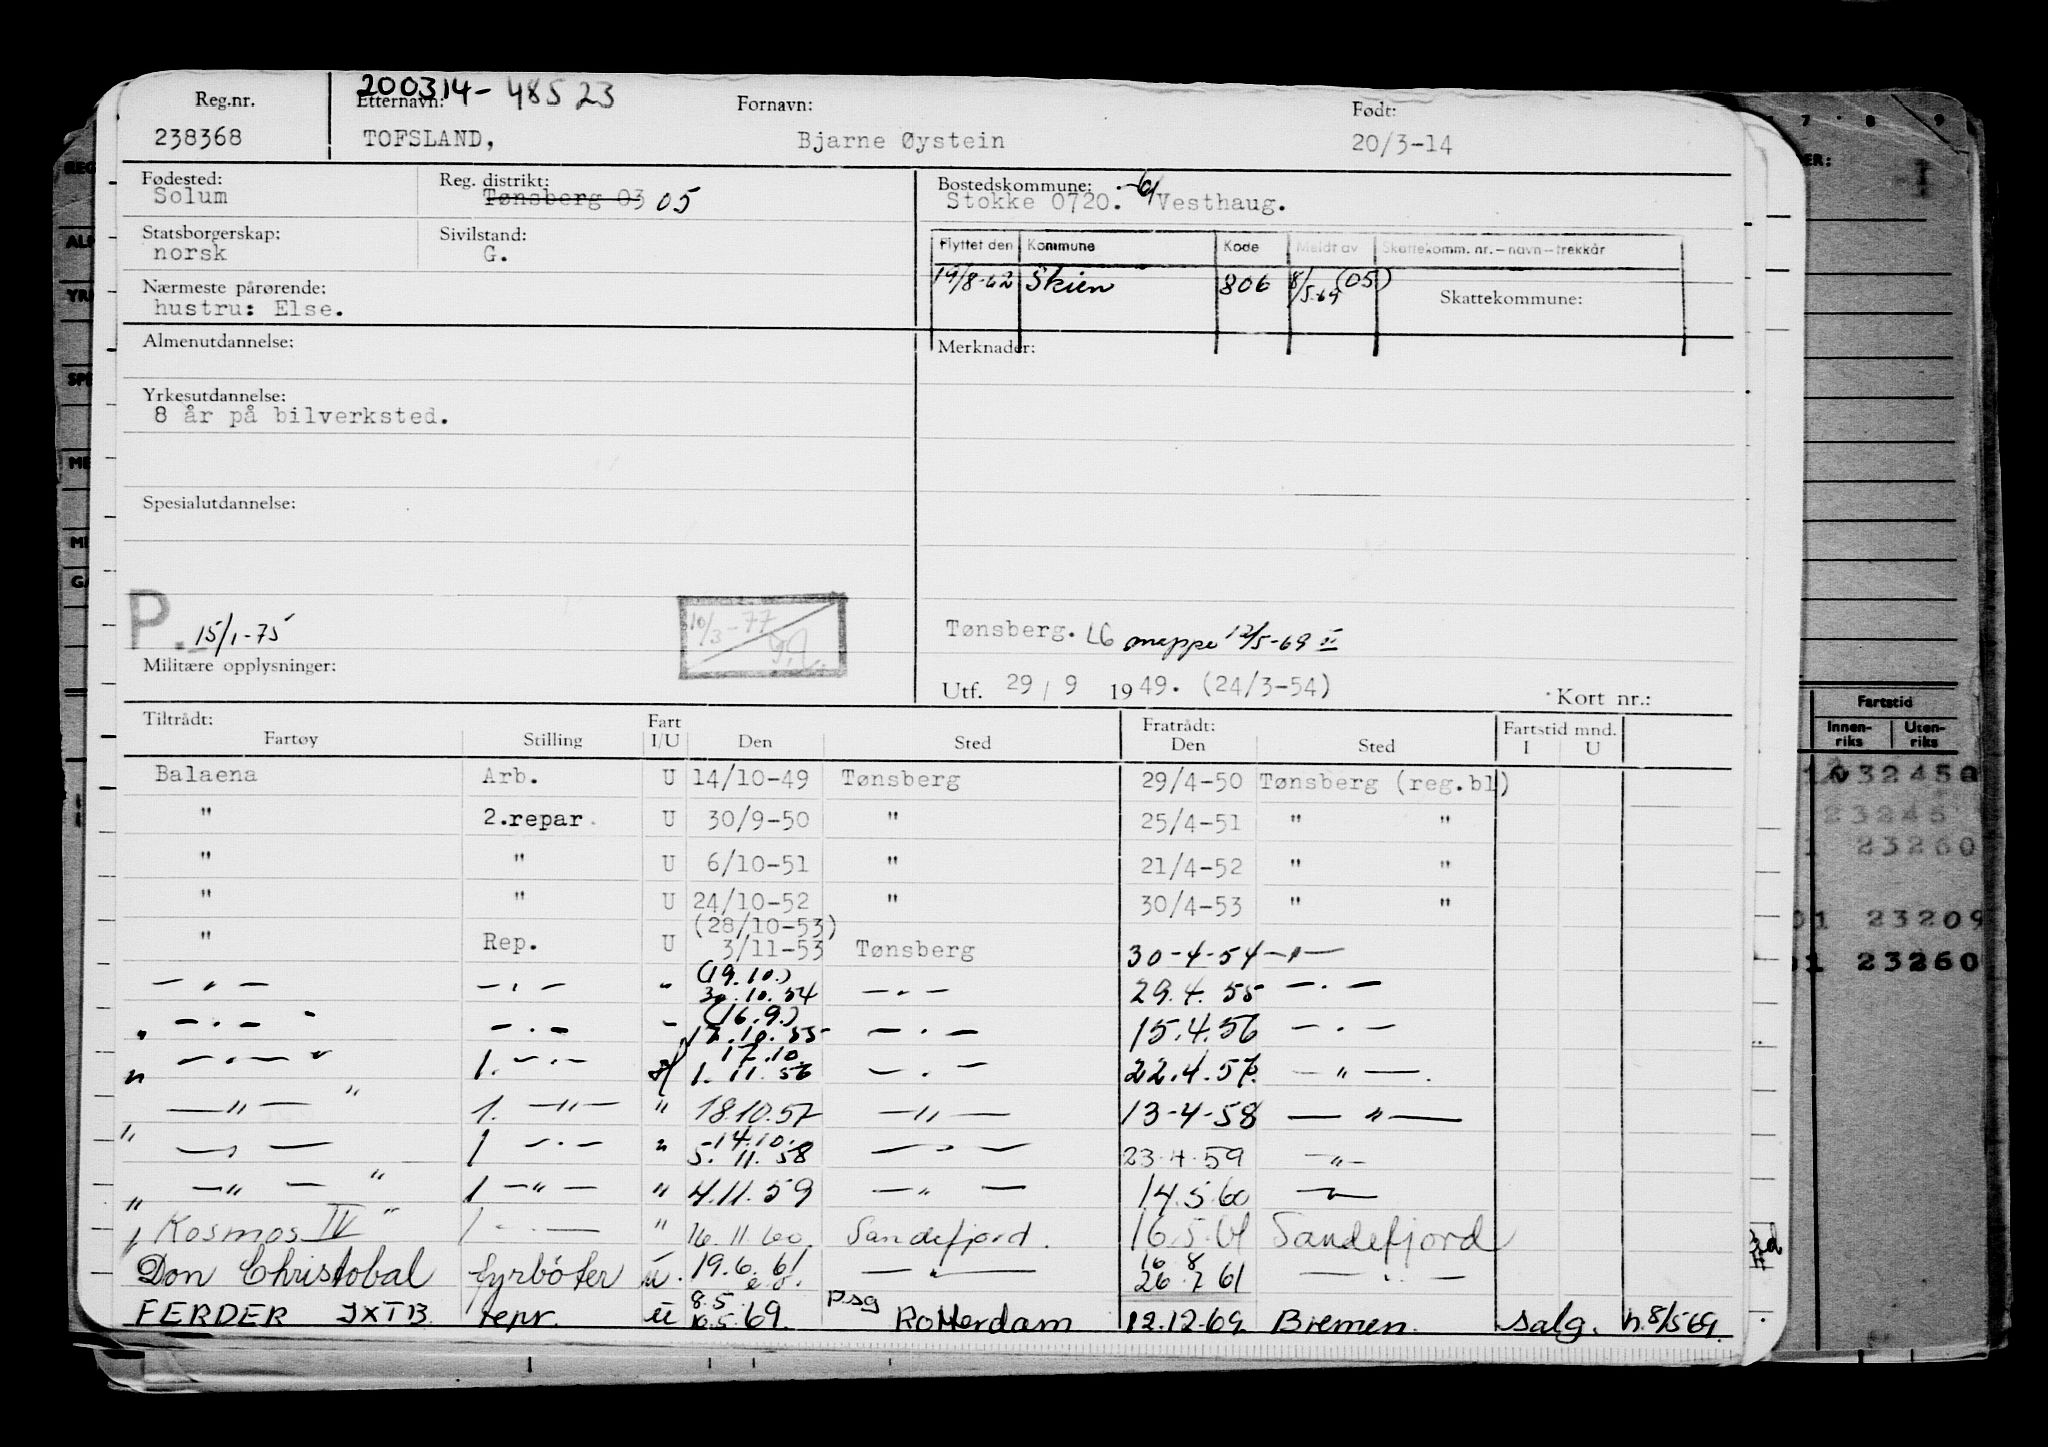 200314-48523
Reg.nr. Etternavn: Fornavn: Født:
238368 TOFSLAND, Bjarne Øystein 20/3-14
Fødested: Reg. distrikt: Bostedskommune:
Solum Tønsberg 03 05 Stokke 0720. Vesthaug.
Statsborgerskap: Sivilstand: Flyttet den Kommune Kode Meldt av Skattekomm. nr.-navn-trekkår
norsk G. 19/8-62 Skien 806 8/5-69 (05)
Nærmeste pårørende: Skattekommune:
hustru: Else.
Almenutdannelse: Merknader:
Yrkesutdannelse:
8 år på bilverksted.
Spesialutdannelse:
P. 15/1-75 10/3-77
Tønsberg. LG mappe 12/5-69
Militære opplysninger: Utf. 29/9 1949. (24/3-54) Kort nr.:
Tiltrådt: Fart Fratrådt: Fartstid mnd.
Fartøy Stilling I/U Den Sted Den Sted I U
Balaena Arb. U 14/10-49 Tønsberg 29/4-50 Tønsberg (reg.bl)
" 2.repar. U 30/9-50 " 25/4-51 " "
" " U 6/10-51 " 21/4-52 " "
" " U 24/10-52 " 30/4-53 " "
(28/10-53)
" Rep. U 3/11-53 Tønsberg 30-4-54 -"-
(19.10.)
-"- -"- " 30.10.54 -"- 29.4.55 -"-
(16.9.)
-"- -"- " 17.10.55 -"- 15.4.56 -"-
17.10.
-"- 1. -"- 1.11.56 -"- 22.4.57. -"-
-"- 1. -"- " 18.10.57 -"- 13-4-58 -"-
14.10.
-"- 1 -"- " 5.11.58 -"- 23.4.59 -"-
-"- 1 -"- " 4.11.59 -"- 14.5.60 -"-
Kosmos IV 1 -"- " 16.11.60. Sandefjord. 16.5.61 Sandefjord
16 8
Don Christobal fyrbøter u. 19.6.61 -"- 26.7.61 -"-
8.5.
FERDER JXTB repr. u 10.5.69. psg Rotterdam 12.12.69. Bremen. salg. h.8/5 69.
7 8 9
Fartstid
Innen-riks Uten-riks
32450
23245
1 23260
01 23209
01 23260